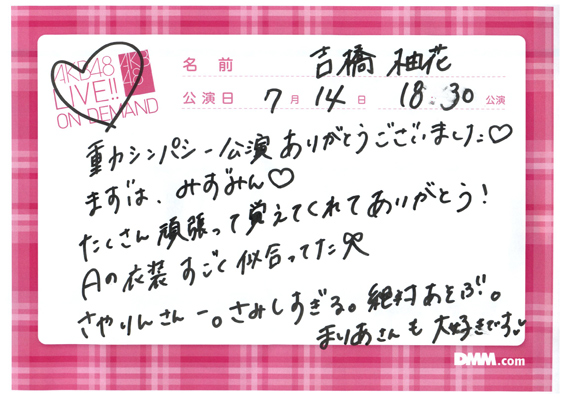 AKB48
LIVE!!
ON DEMAND
AKB
48
名前 吉橋 柚花
公演日 7月14日 18:30公演
重力シンパシー公演ありがとうございました♡
まずは、みずみん♡
たくさん頑張って覚えてくれてありがとう!
Aの衣装すごく似合ってた
さやりんさんー。さみしすぎる。絶対あそぶ。
まりあさんも大好きです。
DMM.com